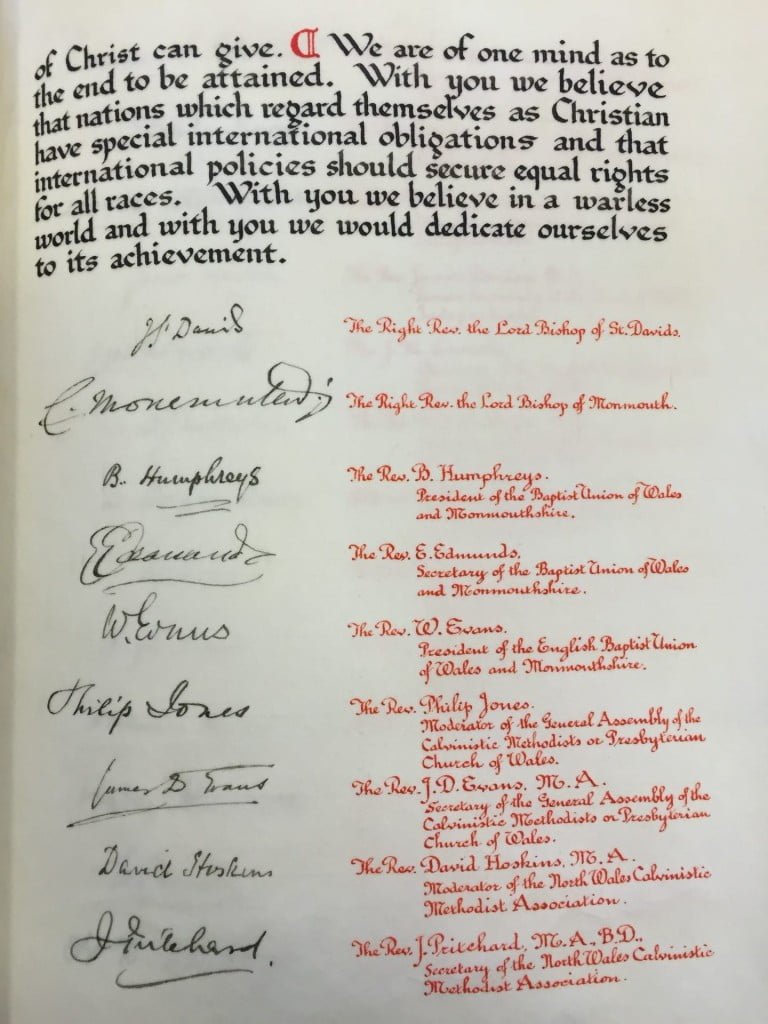 of Christ can give. ¶ We are of one mind as to
the end to be attained. With you we believe
that nations which regard themselves as Christian
have special international obligations and that
international policies should secure equal rights
for all races. With you we believe in a warless
world and with you we would dedicate ourselves
to its achievement.
The Right Rev. the Lord Bishop of St. Davids.
The Right Rev. the Lord Bishop of Monmouth.
B. Humphreys
The Rev. B. Humphreys.
President of the Baptist Union of Wales
and Monmouthshire.
The Rev. E. Edmunds.
Secretary of the Baptist Union of Wales
and Monmouthshire.
W. Evans
The Rev. W. Evans.
President of the English Baptist Union
of Wales and Monmouthshire.
Philip Jones
The Rev. Philip Jones.
Moderator of the General Assembly of the
Calvinistic Methodists or Presbyterian
Church of Wales.
James D Evans
The Rev. J. D. Evans, M.A.
Secretary of the General Assembly of the
Calvinistic Methodists or Presbyterian
Church of Wales.
David Hoskins
The Rev. David Hoskins, M.A.
Moderator of the North Wales Calvinistic
Methodist Association.
J Pritchard.
The Rev. J. Pritchard, M.A., B.D.,
Secretary of the North Wales Calvinistic
Methodist Association.